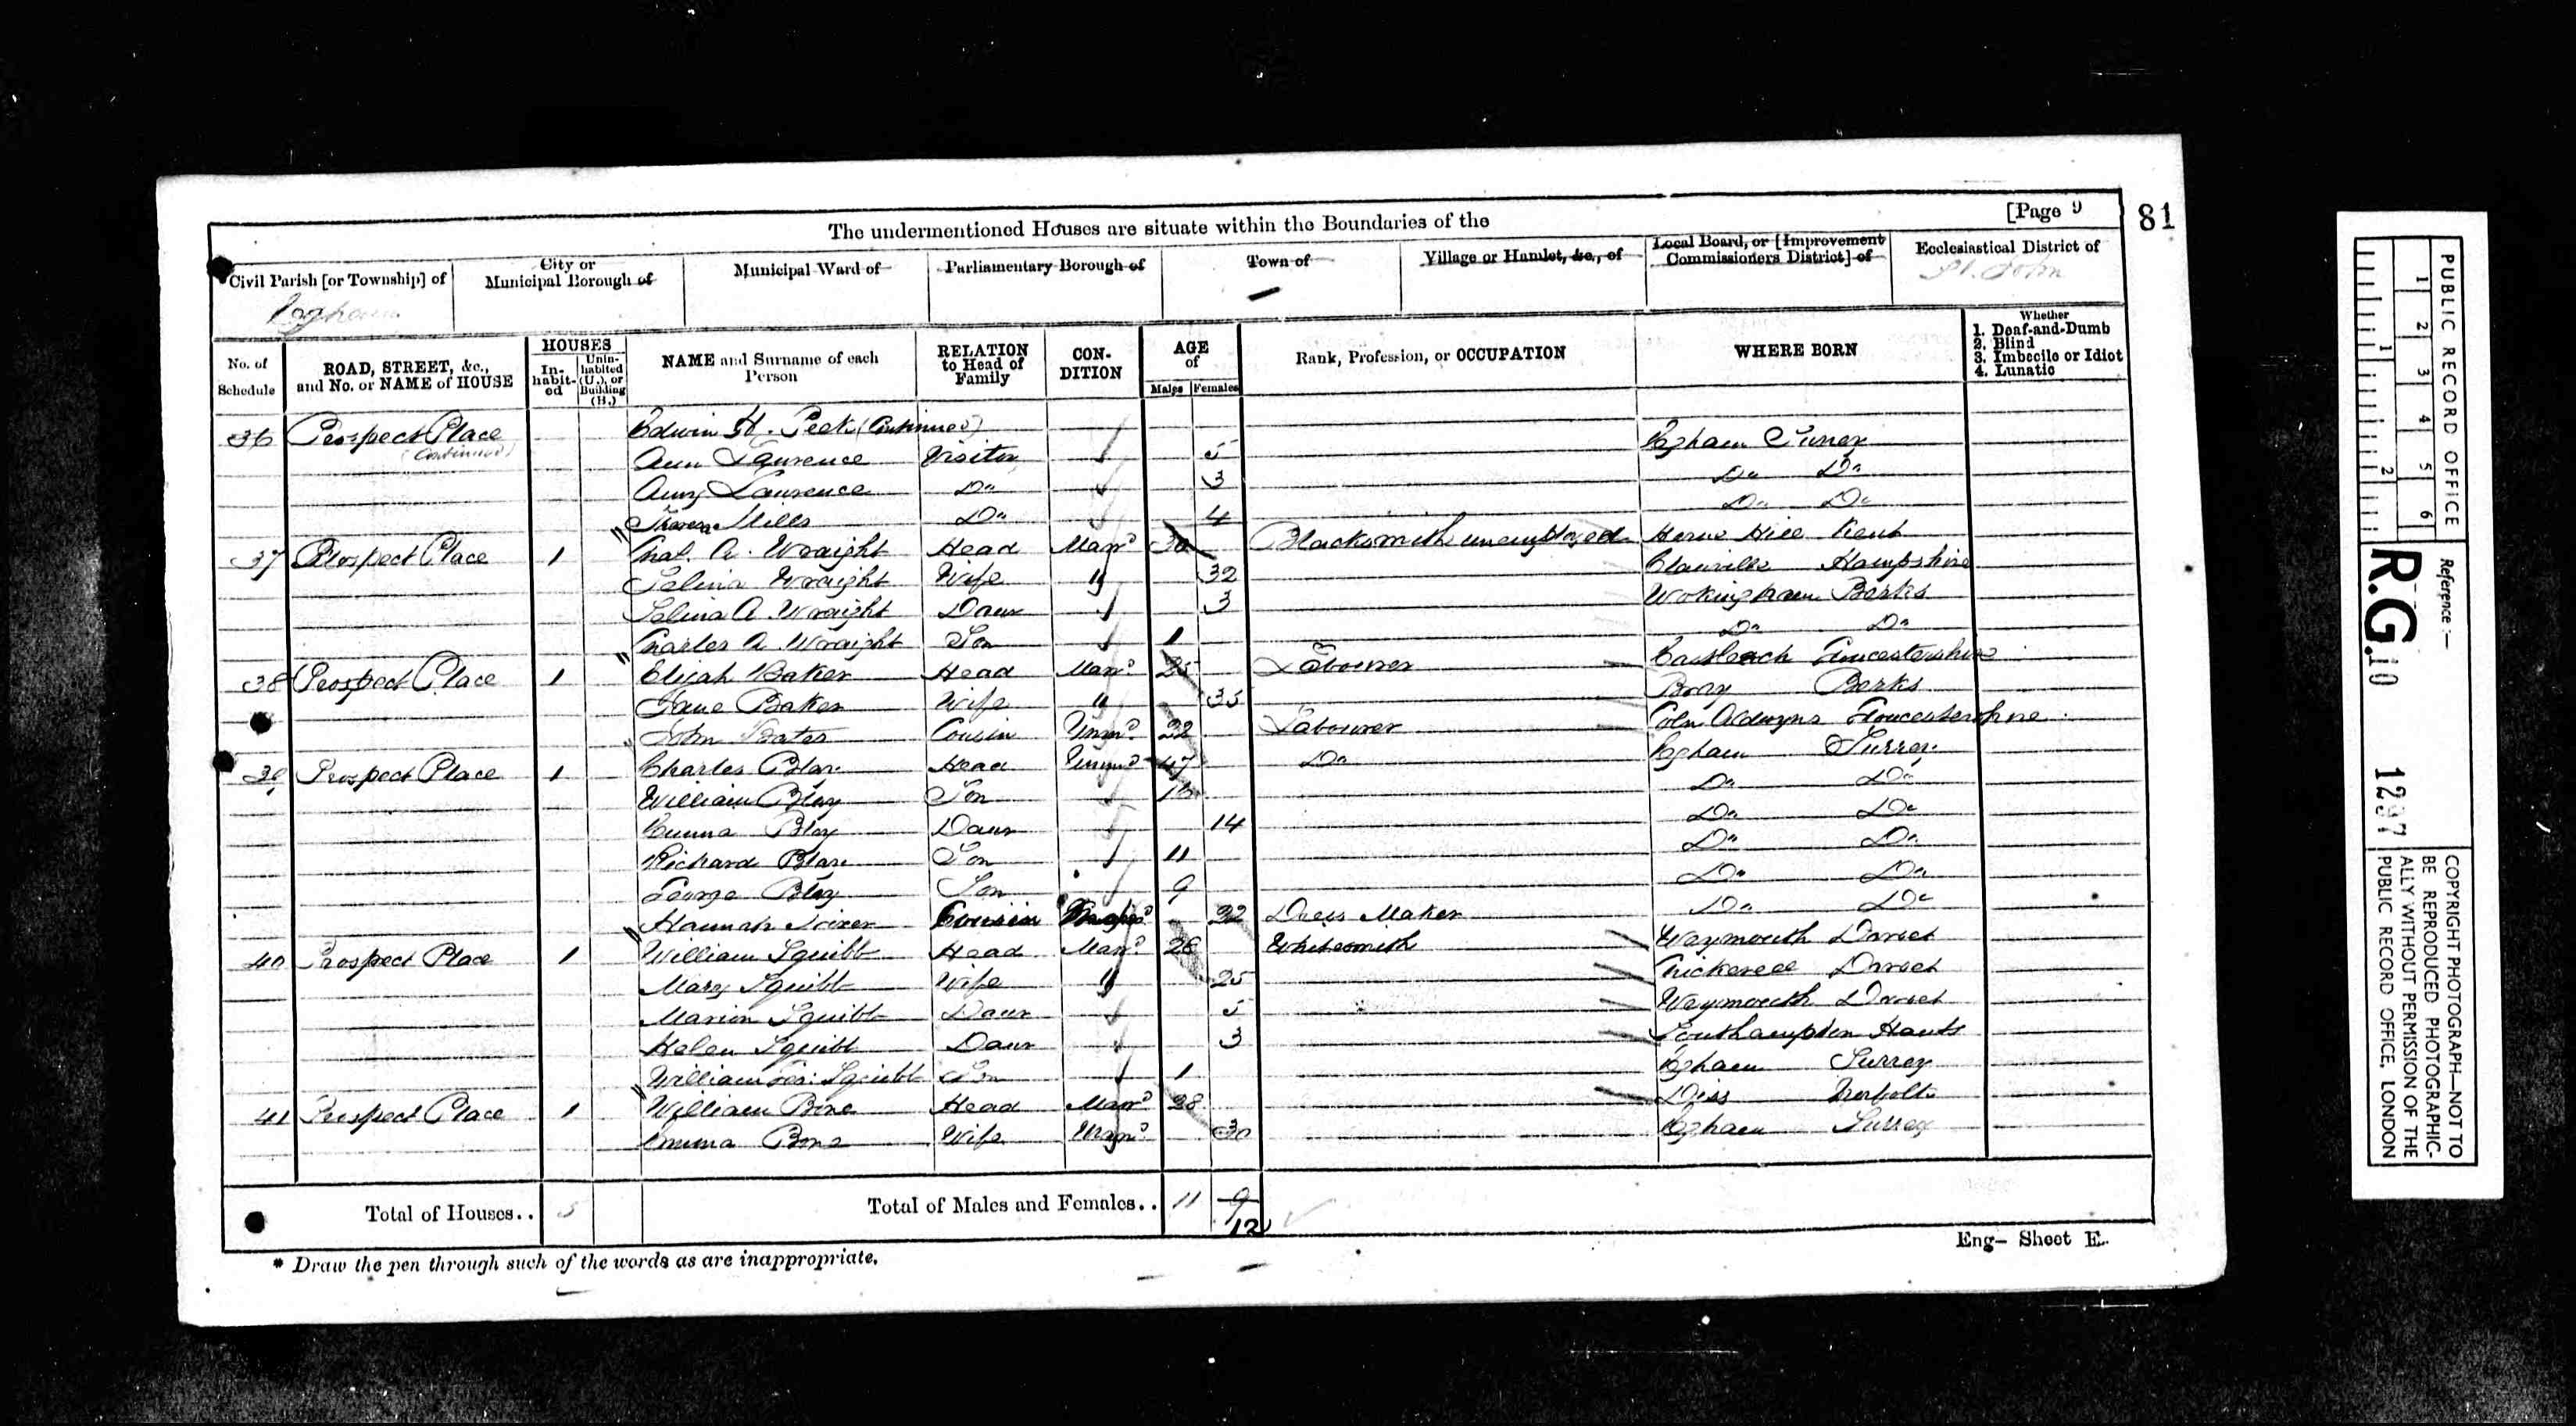 The undermentioned Houses are situate within the Boundaries of the
[Page 9
81
Civil Parish [or Township] of
Egham
City or Municipal Borough of
Municipal Ward of
Parliamentary Borough of
Town of
Village or Hamlet, &c., of
Local Board, or [Improvement Commissioners District] of
Ecclesiastical District of
St. John
No. of Schedule
ROAD, STREET, &c., and No. or NAME of HOUSE
HOUSES
In-habit-ed
Unin-habited (U.), or Building (B.)
NAME and Surname of each Person
RELATION to Head of Family
CON-DITION
AGE of
Males
Females
Rank, Profession, or OCCUPATION
WHERE BORN
Whether
1. Deaf-and-Dumb
2. Blind
3. Imbecile or Idiot
4. Lunatic
36 Prospect Place (Continued) Edwin H. Peek (Continued)
Ann Laurence Visitor 5 Egham Surrey
Amy Laurence Do 3 Do Do
Mills Do 4 Do Do
37 Prospect Place 1 Chas. A. Wraight Head Marrd 30 Blacksmith unemployed Herne Hill Kent
Selina Wraight Wife " 32 Hampshire
Selina A. Wraight Daur 3 Wokingham Berks
Charles A. Wraight Son 1 Do Do
38 Prospect Place 1 Elijah Baker Head Marrd 35 Labourer Eastleach Gloucestershire
Jane Baker Wife " 35 Bray Berks
John Bates Cousin Unmd 22 Labourer Coln Aldwyns Gloucestershire
39 Prospect Place 1 Charles Blay Head 47 Do Egham Surrey
William Blay Son Do Do
Emma Blay Daur 14 Do Do
Richard Blay Son 11 Do Do
George Blay Son 9 Do Do
Hannah Cousin 32 Dress Maker Do Do
40 Prospect Place 1 William Squibb Head Marrd 28 Whitesmith Weymouth Dorset
Mary Squibb Wife " 25 Chickerell Dorset
Marion Squibb Daur 5 Weymouth Dorset
Helen Squibb Daur 3 Southampton Hants
William Squibb Son 1 Egham Surrey
41 Prospect Place 1 William Bone Head Marrd 38 Diss Norfolk
Emma Bone Wife Marrd 30 Egham Surrey
Total of Houses.. 5
Total of Males and Females.. 11 9 12
* Draw the pen through such of the words as are inappropriate.
Eng- Sheet E.
1 2 3 4 5 6
1 2
PUBLIC RECORD OFFICE
Reference :—
R.G. 10 1297
COPYRIGHT PHOTOGRAPH—NOT TO
BE REPRODUCED PHOTOGRAPHIC-
ALLY WITHOUT PERMISSION OF THE
PUBLIC RECORD OFFICE, LONDON